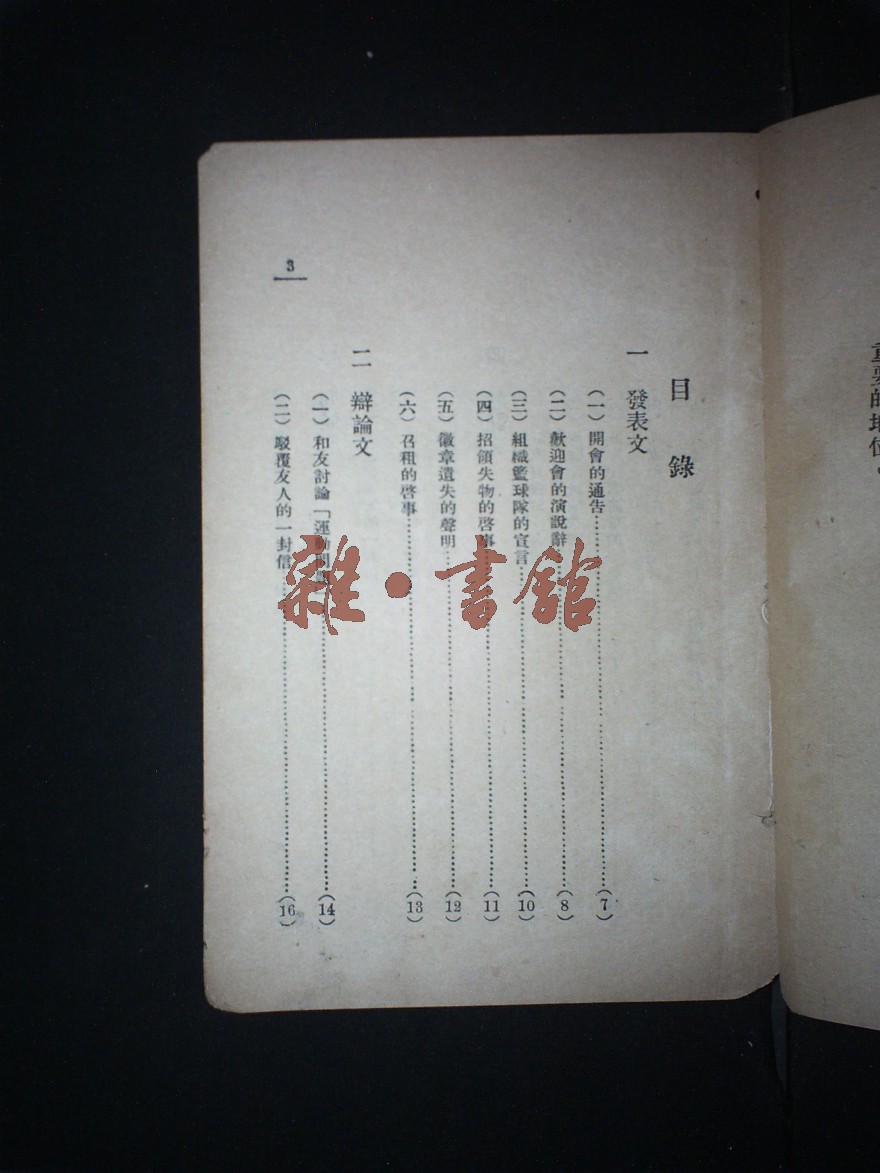 重要的地位。
目錄
一 發表文
(一) 開會的通告 (7)
(二) 歡迎會的演說辭 (8)
(三) 組織籃球隊的宣言 (10)
(四) 招領失物的啓事 (11)
(五) 徽章遺失的聲明 (12)
(六) 召租的啓事 (13)
二 辯論文
(一) 和友討論「運動問題 (14)
(二) 駁覆友人的一封信 (16)
3
雜·書館